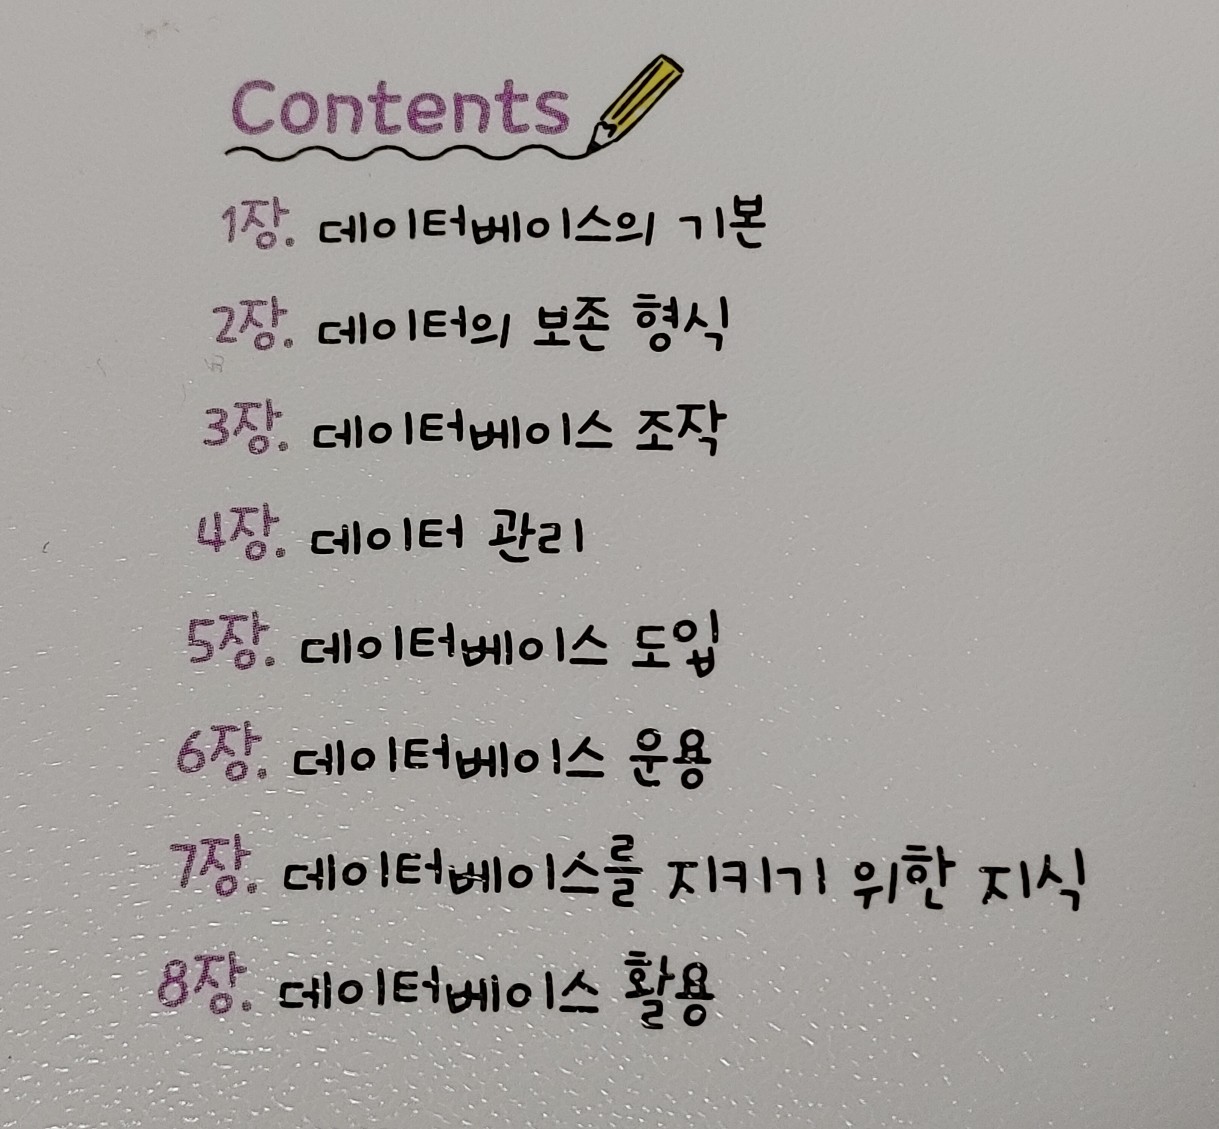 Contents
1장. 데이터베이스의 기본
2장. 데이터의 보존 형식
3장. 데이터베이스 조작
4장. 데이터 관리
5장. 데이터베이스 도입
6장. 데이터베이스 운용
7장. 데이터베이스를 지키기 위한 지식
8장. 데이터베이스 활용